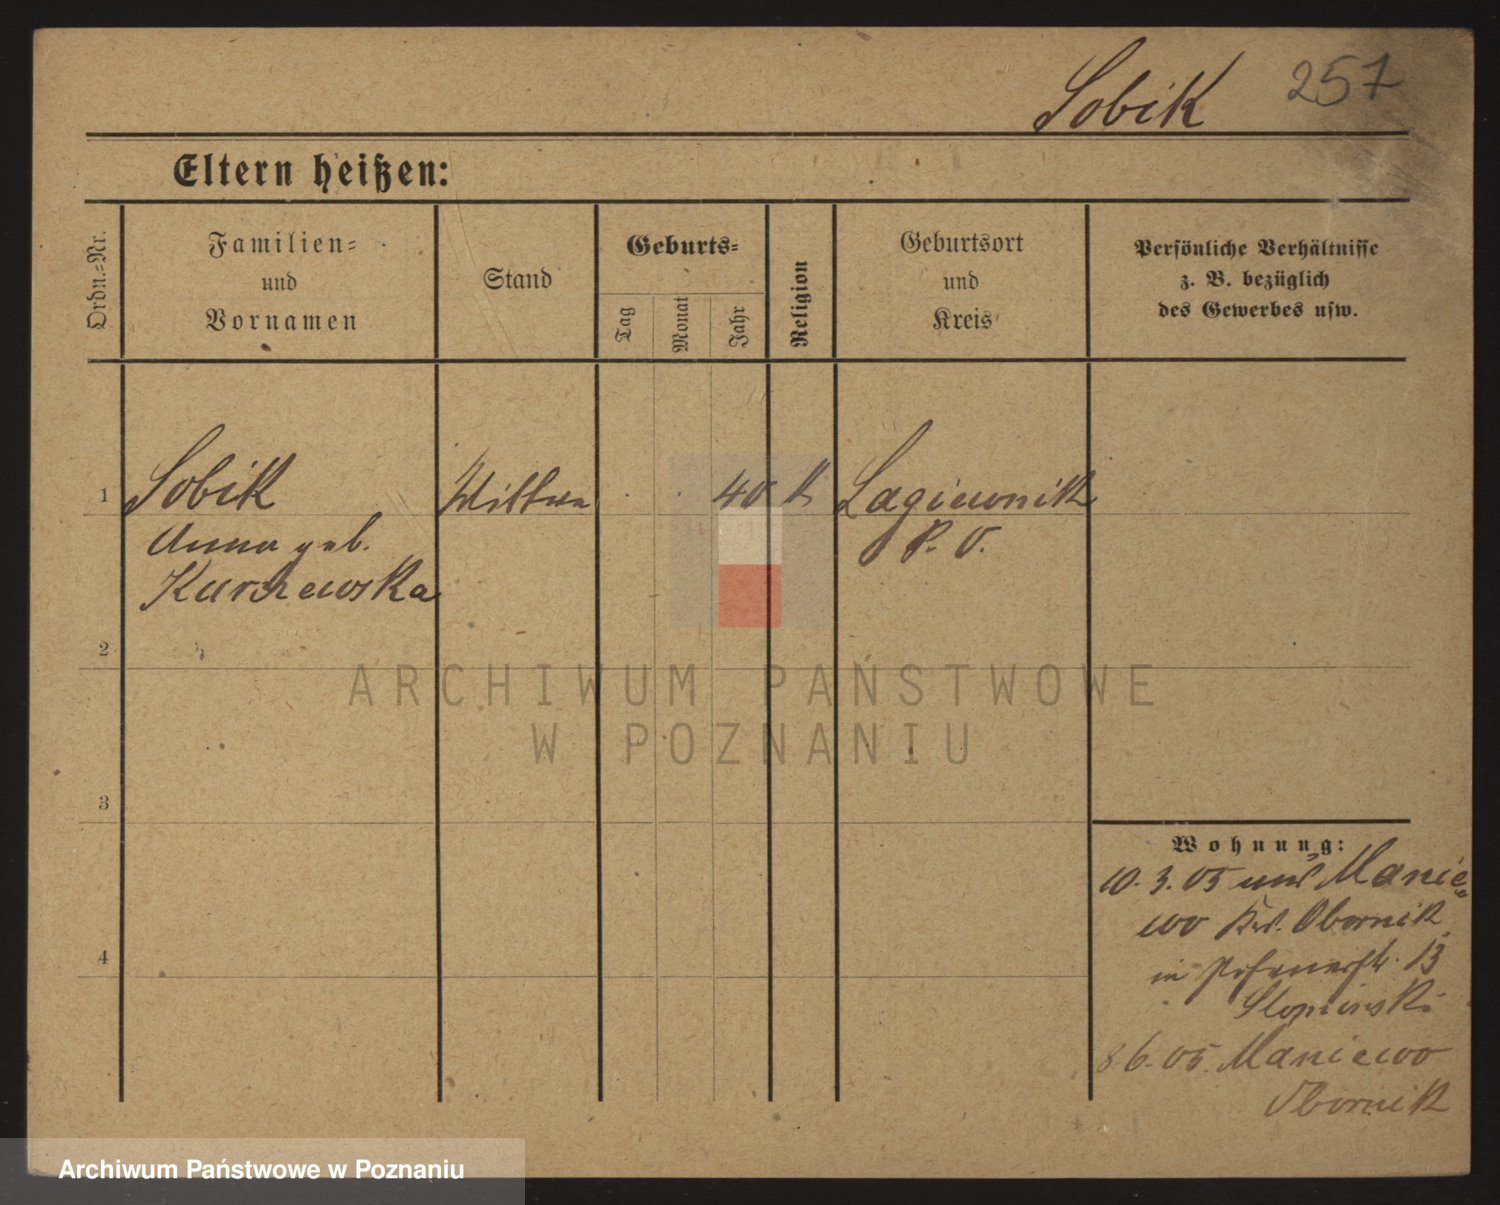 Sobik 257
Eltern heißen:
Ordn.-Nr.
Familien-
und
Vornamen
Stand
Geburts-
Tag
Monat
Jahr
Religion
Geburtsort
und
Kreis
Persönliche Verhältnisse
z. B. bezüglich
des Gewerbes usw.
1 Sobik Wittwe 40 k Lagiewnik
Anna geb. P. O.
Kurzewska
2
3
4
Wohnung:
10. 3. 05 aus Manie-
wo Krs. Obornik
in Posenerstr. 13
Slominski
8 6. 05. Maniewo
Obornik
ARCHIWUM PAŃSTWOWE
W POZNANIU
Archiwum Państwowe w Poznaniu